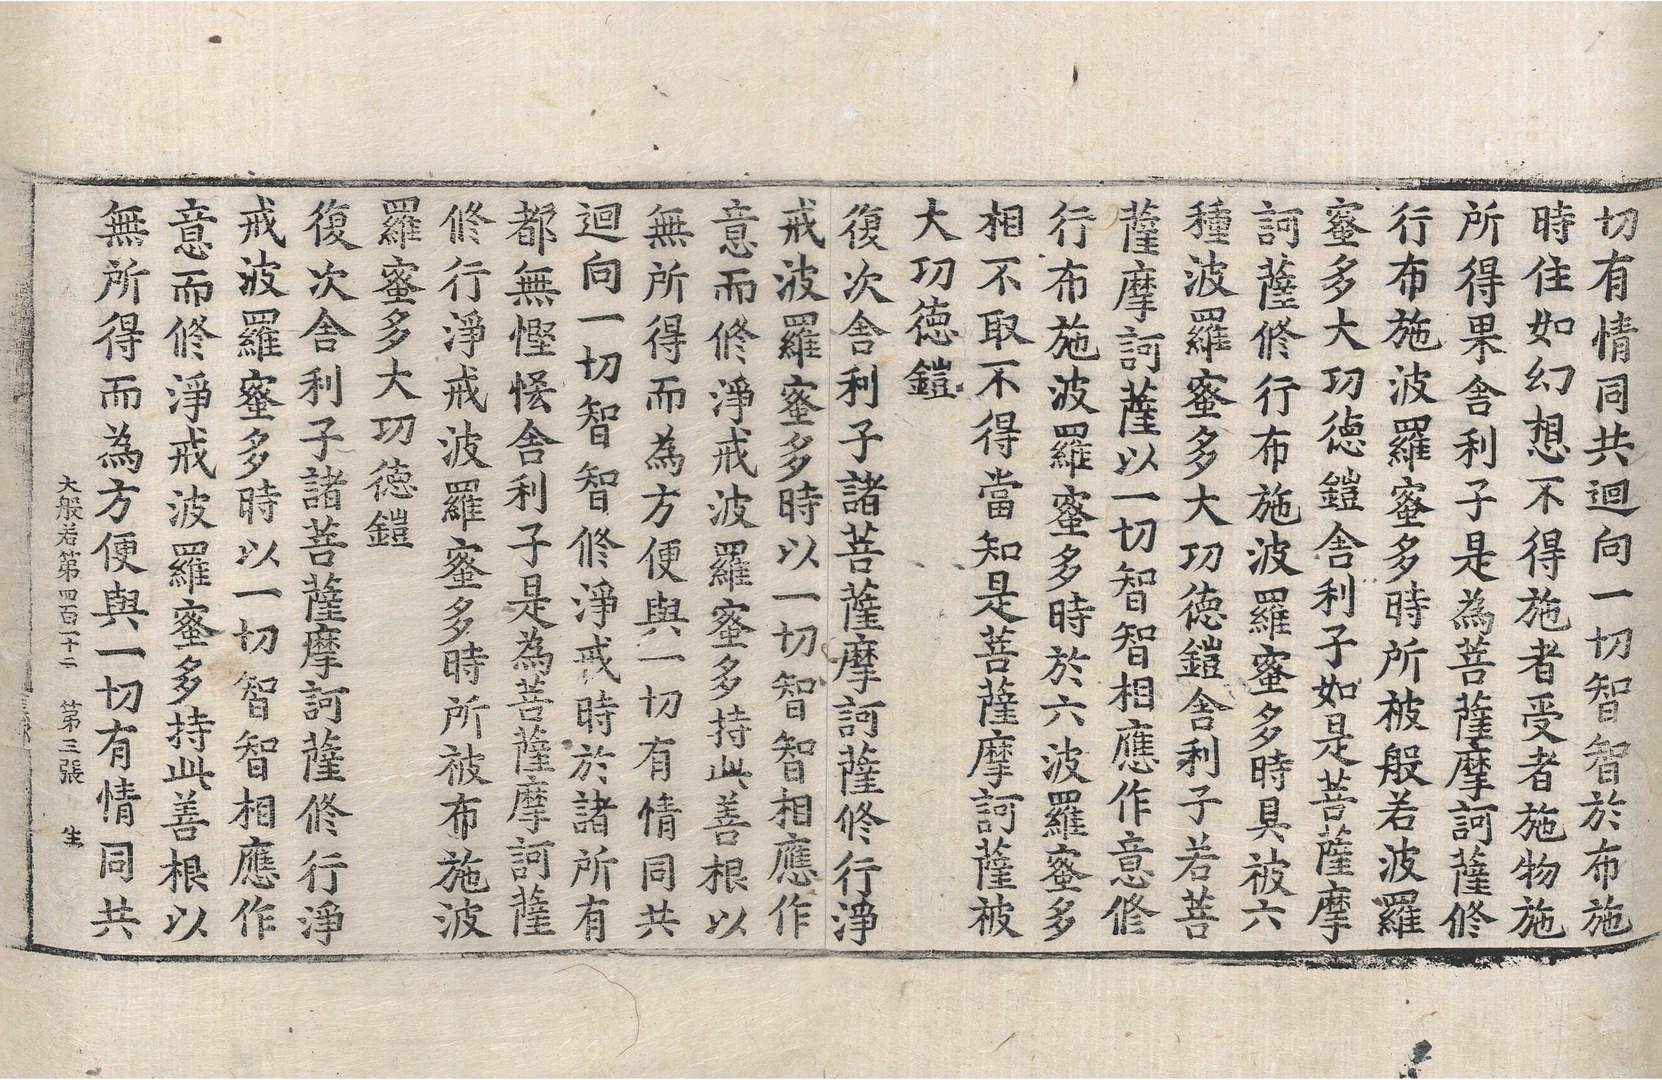 切有情同共迴向一切智智於布施
時住如幻想不得施者受者施物施
所得果舍利子是為菩薩摩訶薩修
行布施波羅蜜多時所被般若波羅
蜜多大功德鎧舍利子如是菩薩摩
訶薩修行布施波羅蜜多時具被六
種波羅蜜多大功德鎧舍利子若菩
薩摩訶薩以一切智智相應作意修
行布施波羅蜜多時於六波羅蜜多
相不取不得當知是菩薩摩訶薩被
大功德鎧
復次舍利子諸菩薩摩訶薩修行淨
戒波羅蜜多時以一切智智相應作
意而修淨戒波羅蜜多持此善根以
無所得而為方便與一切有情同共
迴向一切智智修淨戒時於諸所有
都無慳悋舍利子是為菩薩摩訶薩
修行淨戒波羅蜜多時所被布施波
羅蜜多大功德鎧
復次舍利子諸菩薩摩訶薩修行淨
戒波羅蜜多時以一切智智相應作
意而修淨戒波羅蜜多持此善根以
無所得而為方便與一切有情同共
大般若第四百一十二 第三張 生